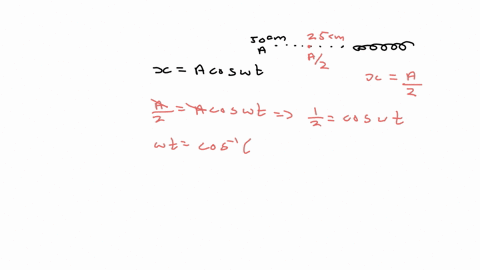 50cm 25cm
A A/2
x = A cos wt x = A/2
A/2 = A cos wt => 1/2 = cos w t
wt = cos⁻¹(